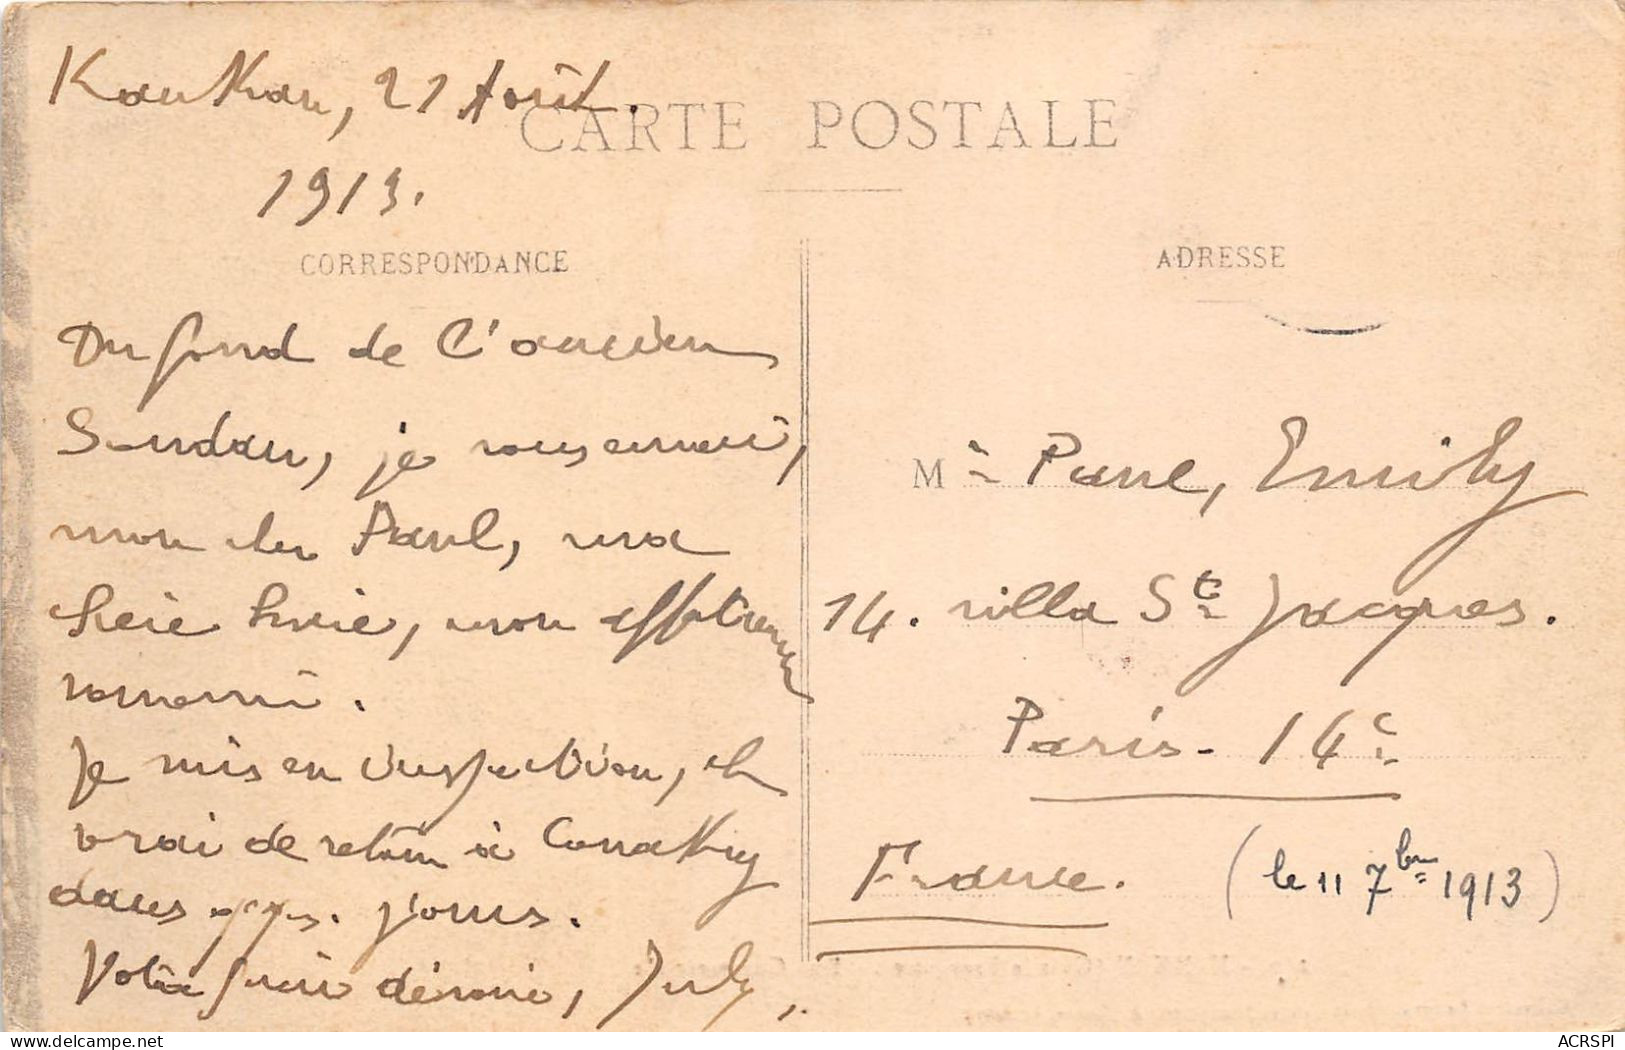 Kankan, 21 Août.
1913.
CARTE POSTALE
CORRESPONDANCE
Du fond de l'ancien
Soudan, je vous envoie,
mon cher Paul, ma
mon affectueux
souvenir.
Je suis en inspection, et
serai de retour à Conakry
dans qqes. jours.
Votre dévoué, July.
ADRESSE
Mr Paul, Emily
14. villa St Jacques.
Paris - 14e
France.
(le 11 7bre 1913)
ACRSPI